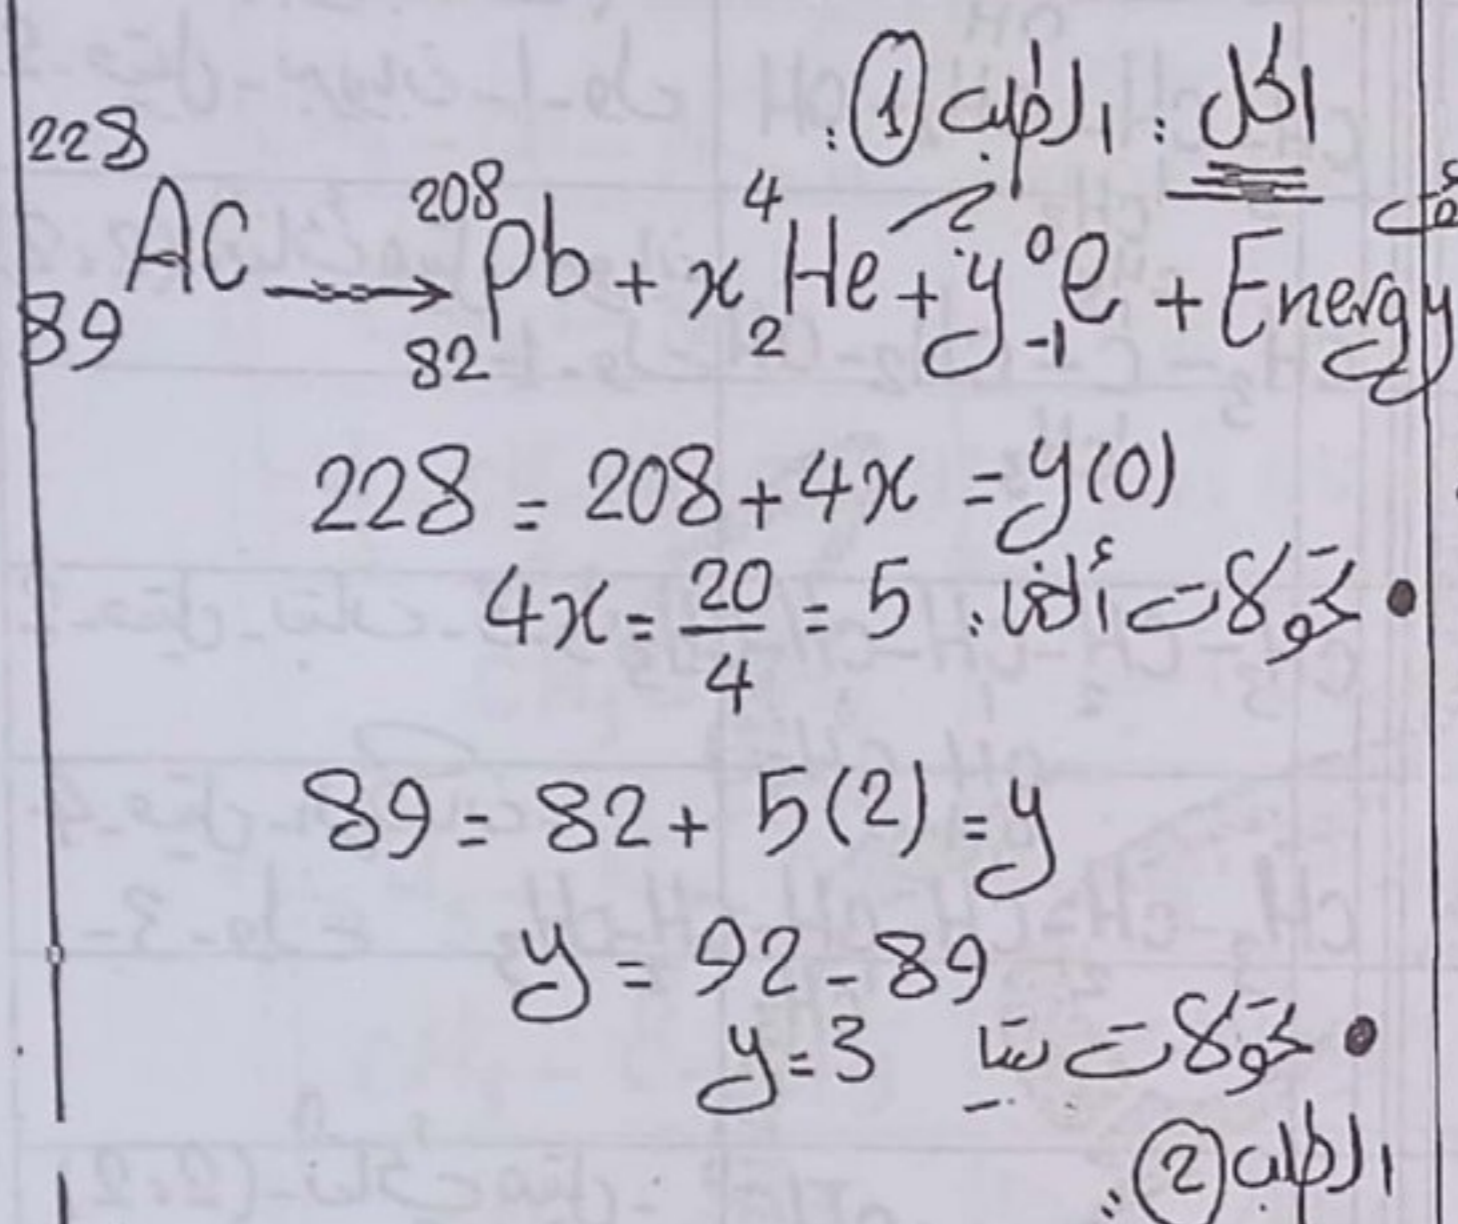 الحل: الطلب ①:
²²⁸₈₉AC → ²⁰⁸₈₂Pb + x ⁴₂He + y ⁰₋₁e + Energy
228 = 208 + 4x = y(0)
• تحولات ألفا: 4x = 20/4 = 5
89 = 82 + 5(2) = y
y = 92 - 89
• تحولات بيتا y = 3
الطلب ②: